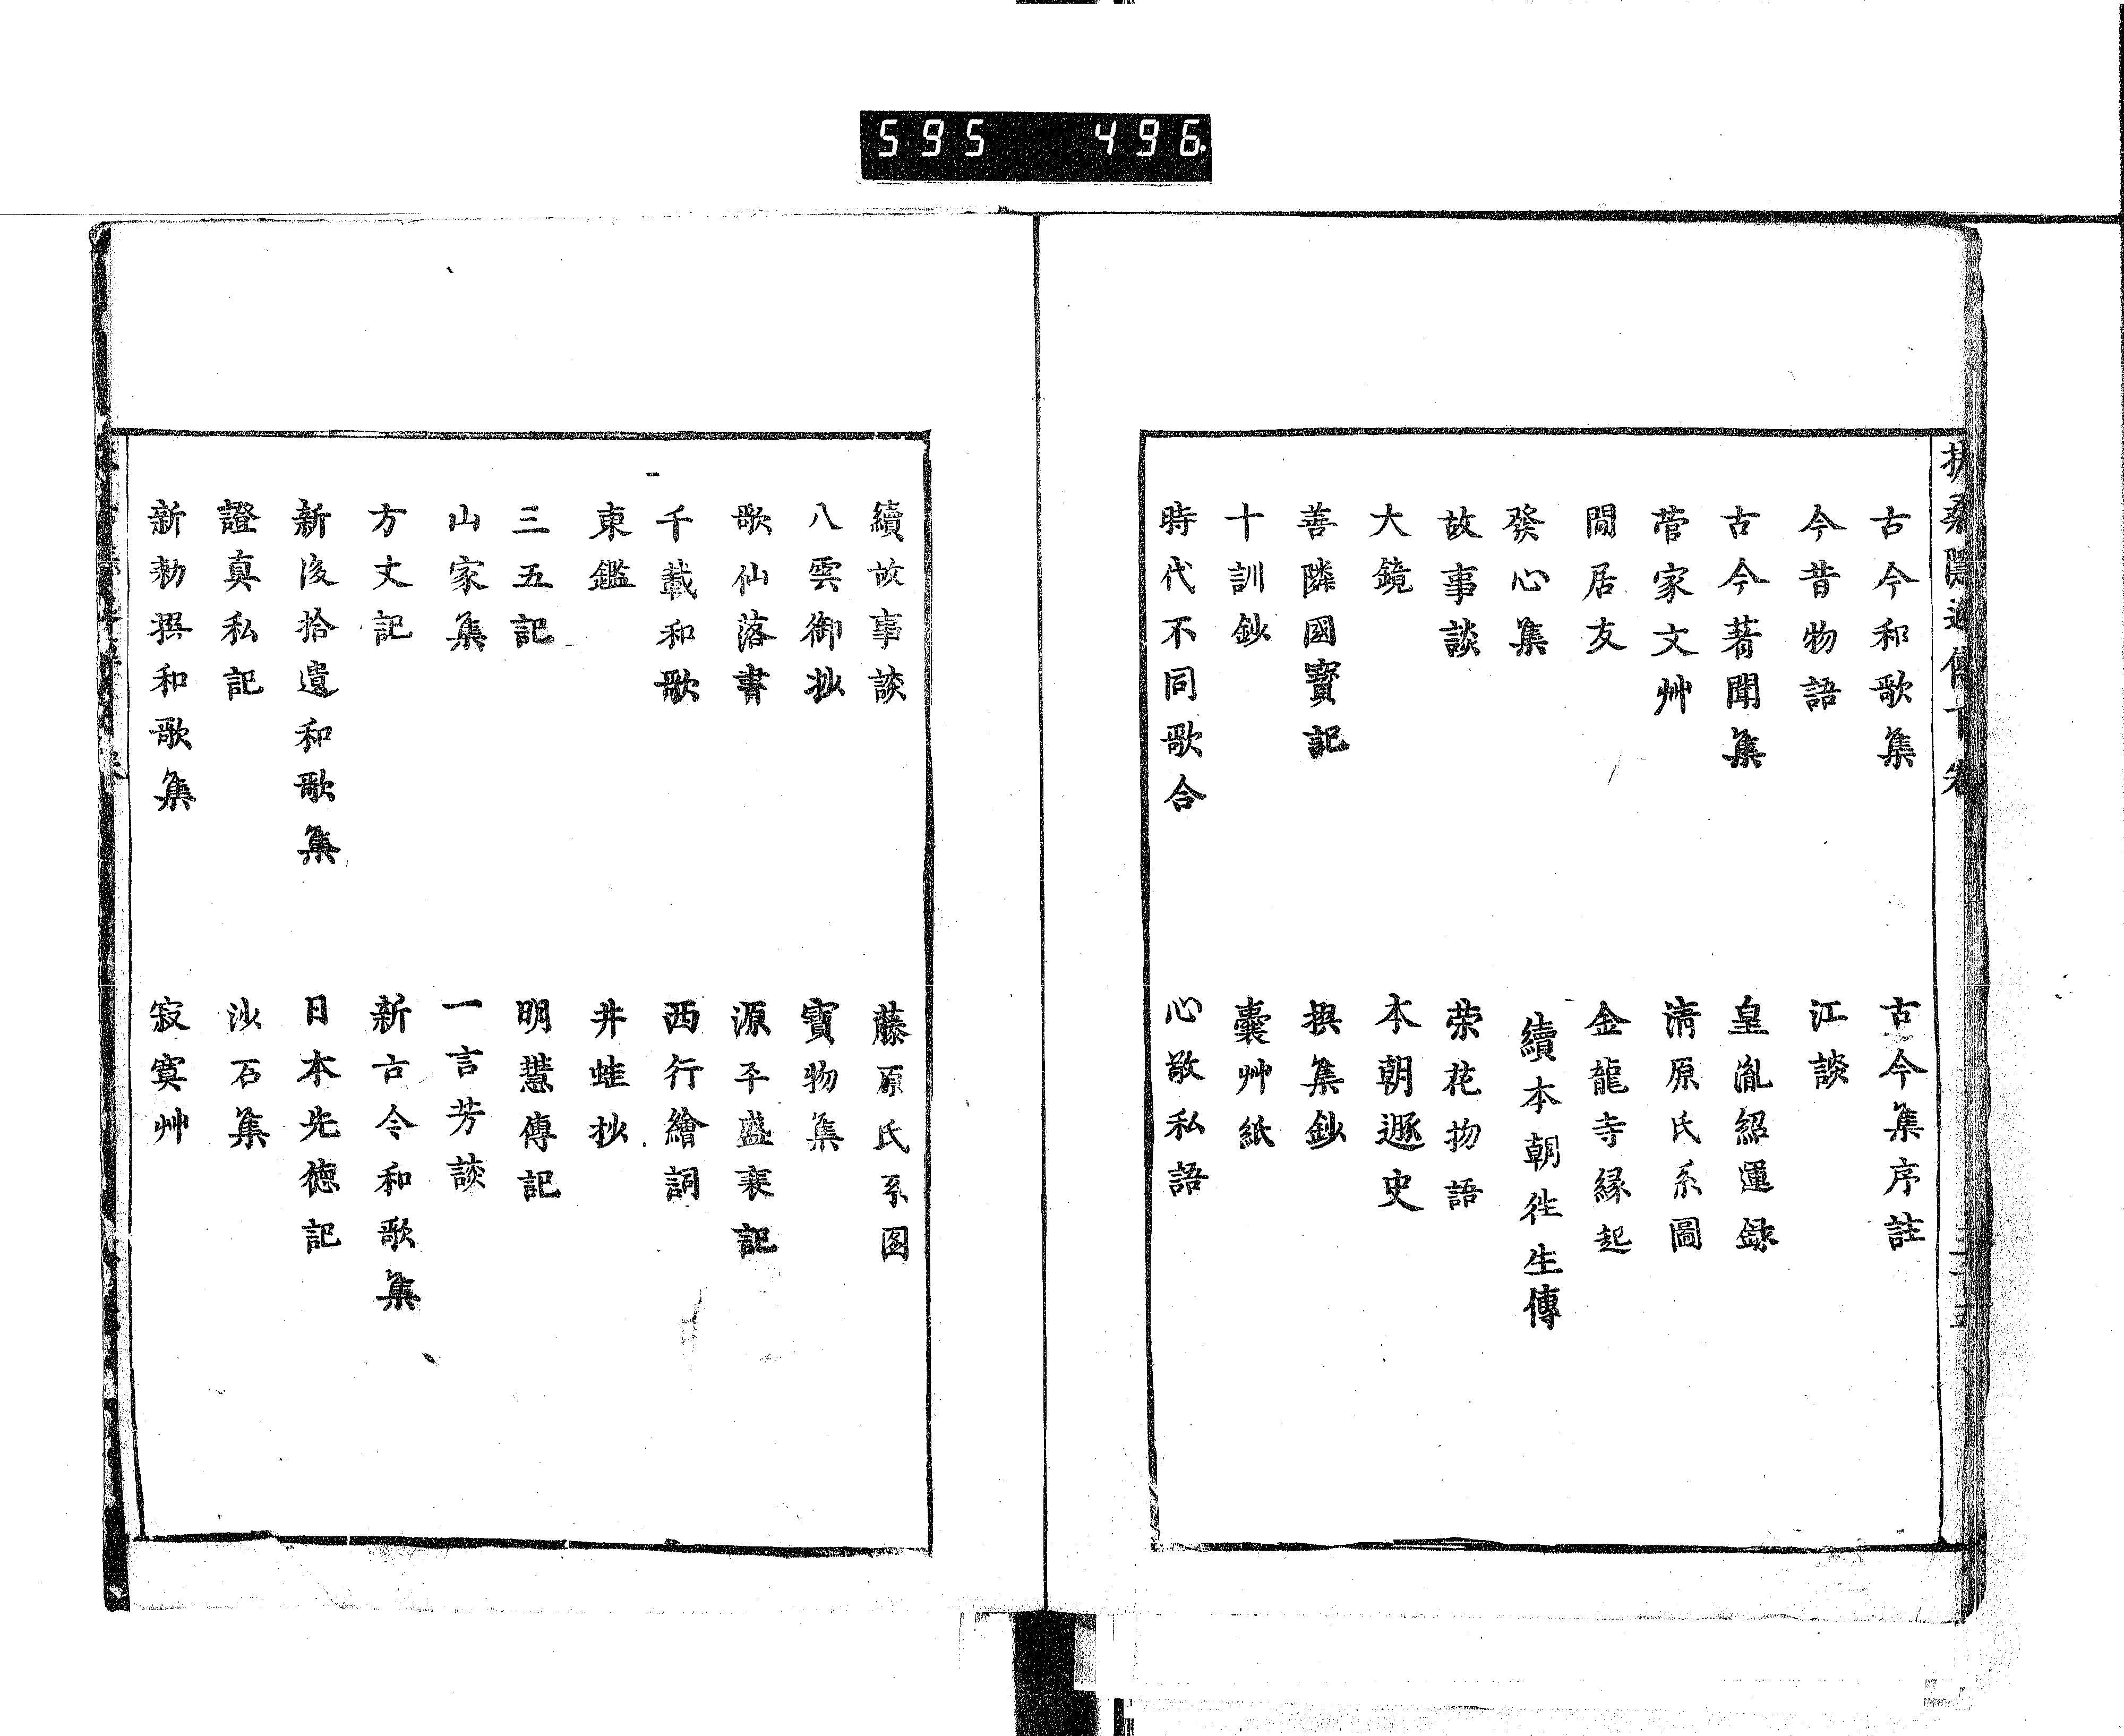 595 496
古今和歌集 古今集序註
今昔物語 江談
古今著聞集 皇胤紹運録
菅家文艸 清原氏系圖
閒居友 金龍寺縁起
發心集 續本朝徃生傳
故事談 荣花物語
大鏡 本朝遯史
善隣國寳記 撰集鈔
十訓鈔 嚢艸紙
時代不同歌合 心敬私語
續故事談 藤原氏系図
八雲御抄 寶物集
歌仙落書 源平盛衰記
千載和歌 西行繪詞
東鑑 井蛙抄
三五記 明慧傳記
山家集 一言芳談
方丈記 新古今和歌集
新後拾遺和歌集 日本先德記
證真私記 沙石集
新勅撰和歌集 寂寞艸